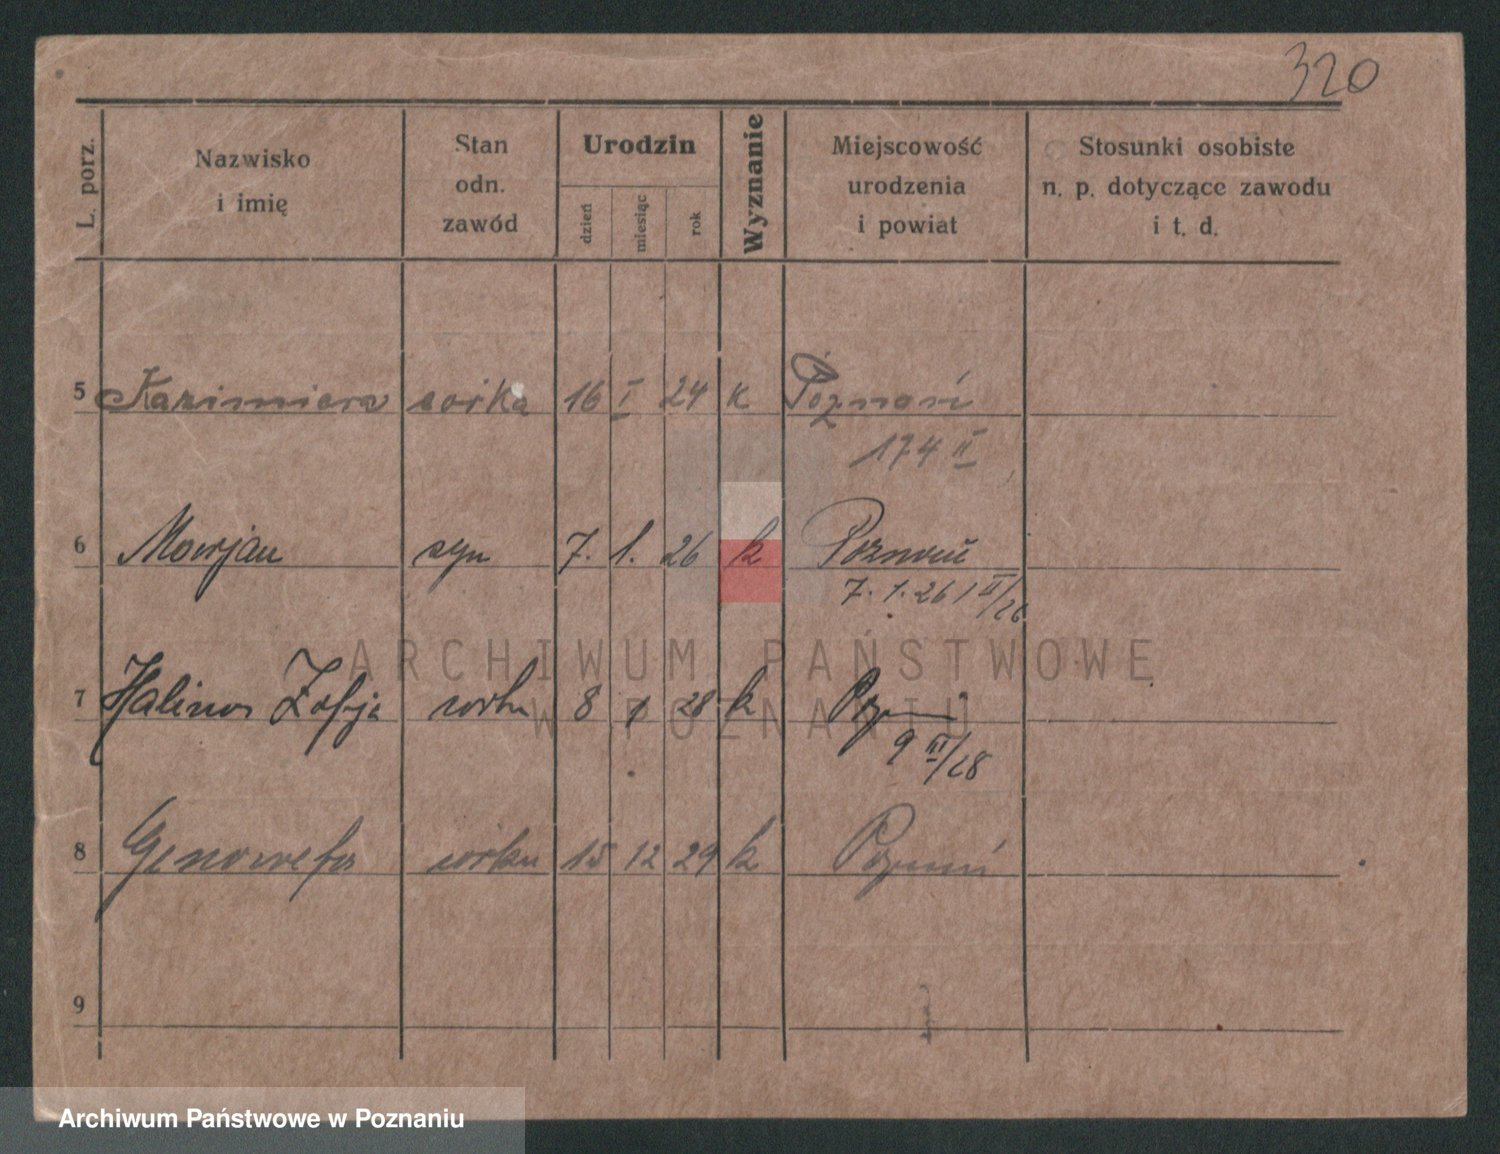 320
L. porz. Nazwisko i imię Stan odn. zawód Urodzin dzień miesiąc rok Wyznanie Miejscowość urodzenia i powiat Stosunki osobiste n. p. dotyczące zawodu i t. d.
5 Kazimiera córka 16 I 24 k Poznań
174 II
6 Marjan syn 7. 1. 26 k Poznań
7. 1. 26 / II/26
ARCHIWUM PAŃSTWOWE
7 Halina Zofja córka 8 1 28 k Pozn
W POZNANIU
9 III/28
8 Genowefa córka 15 12 29 k Poznań
9
Archiwum Państwowe w Poznaniu